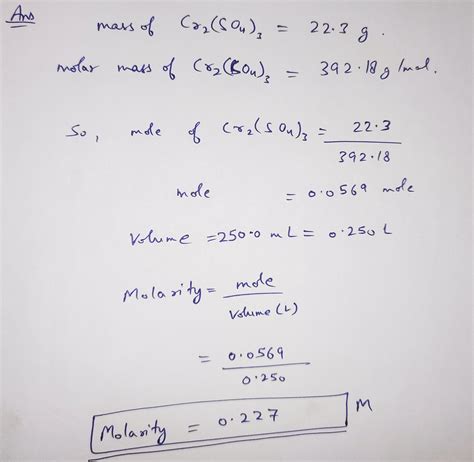 Ans
mass of Cr2(SO4)3 = 22.3 g.
molar mass of Cr2(SO4)3 = 392.18 g/mol.
So, mole of Cr2(SO4)3 = 22.3
392.18
mole = 0.0569 mole
Volume = 250.0 mL = 0.250 L
Molarity = mole
Volume (L)
= 0.0569
0.250
Molarity = 0.227 M